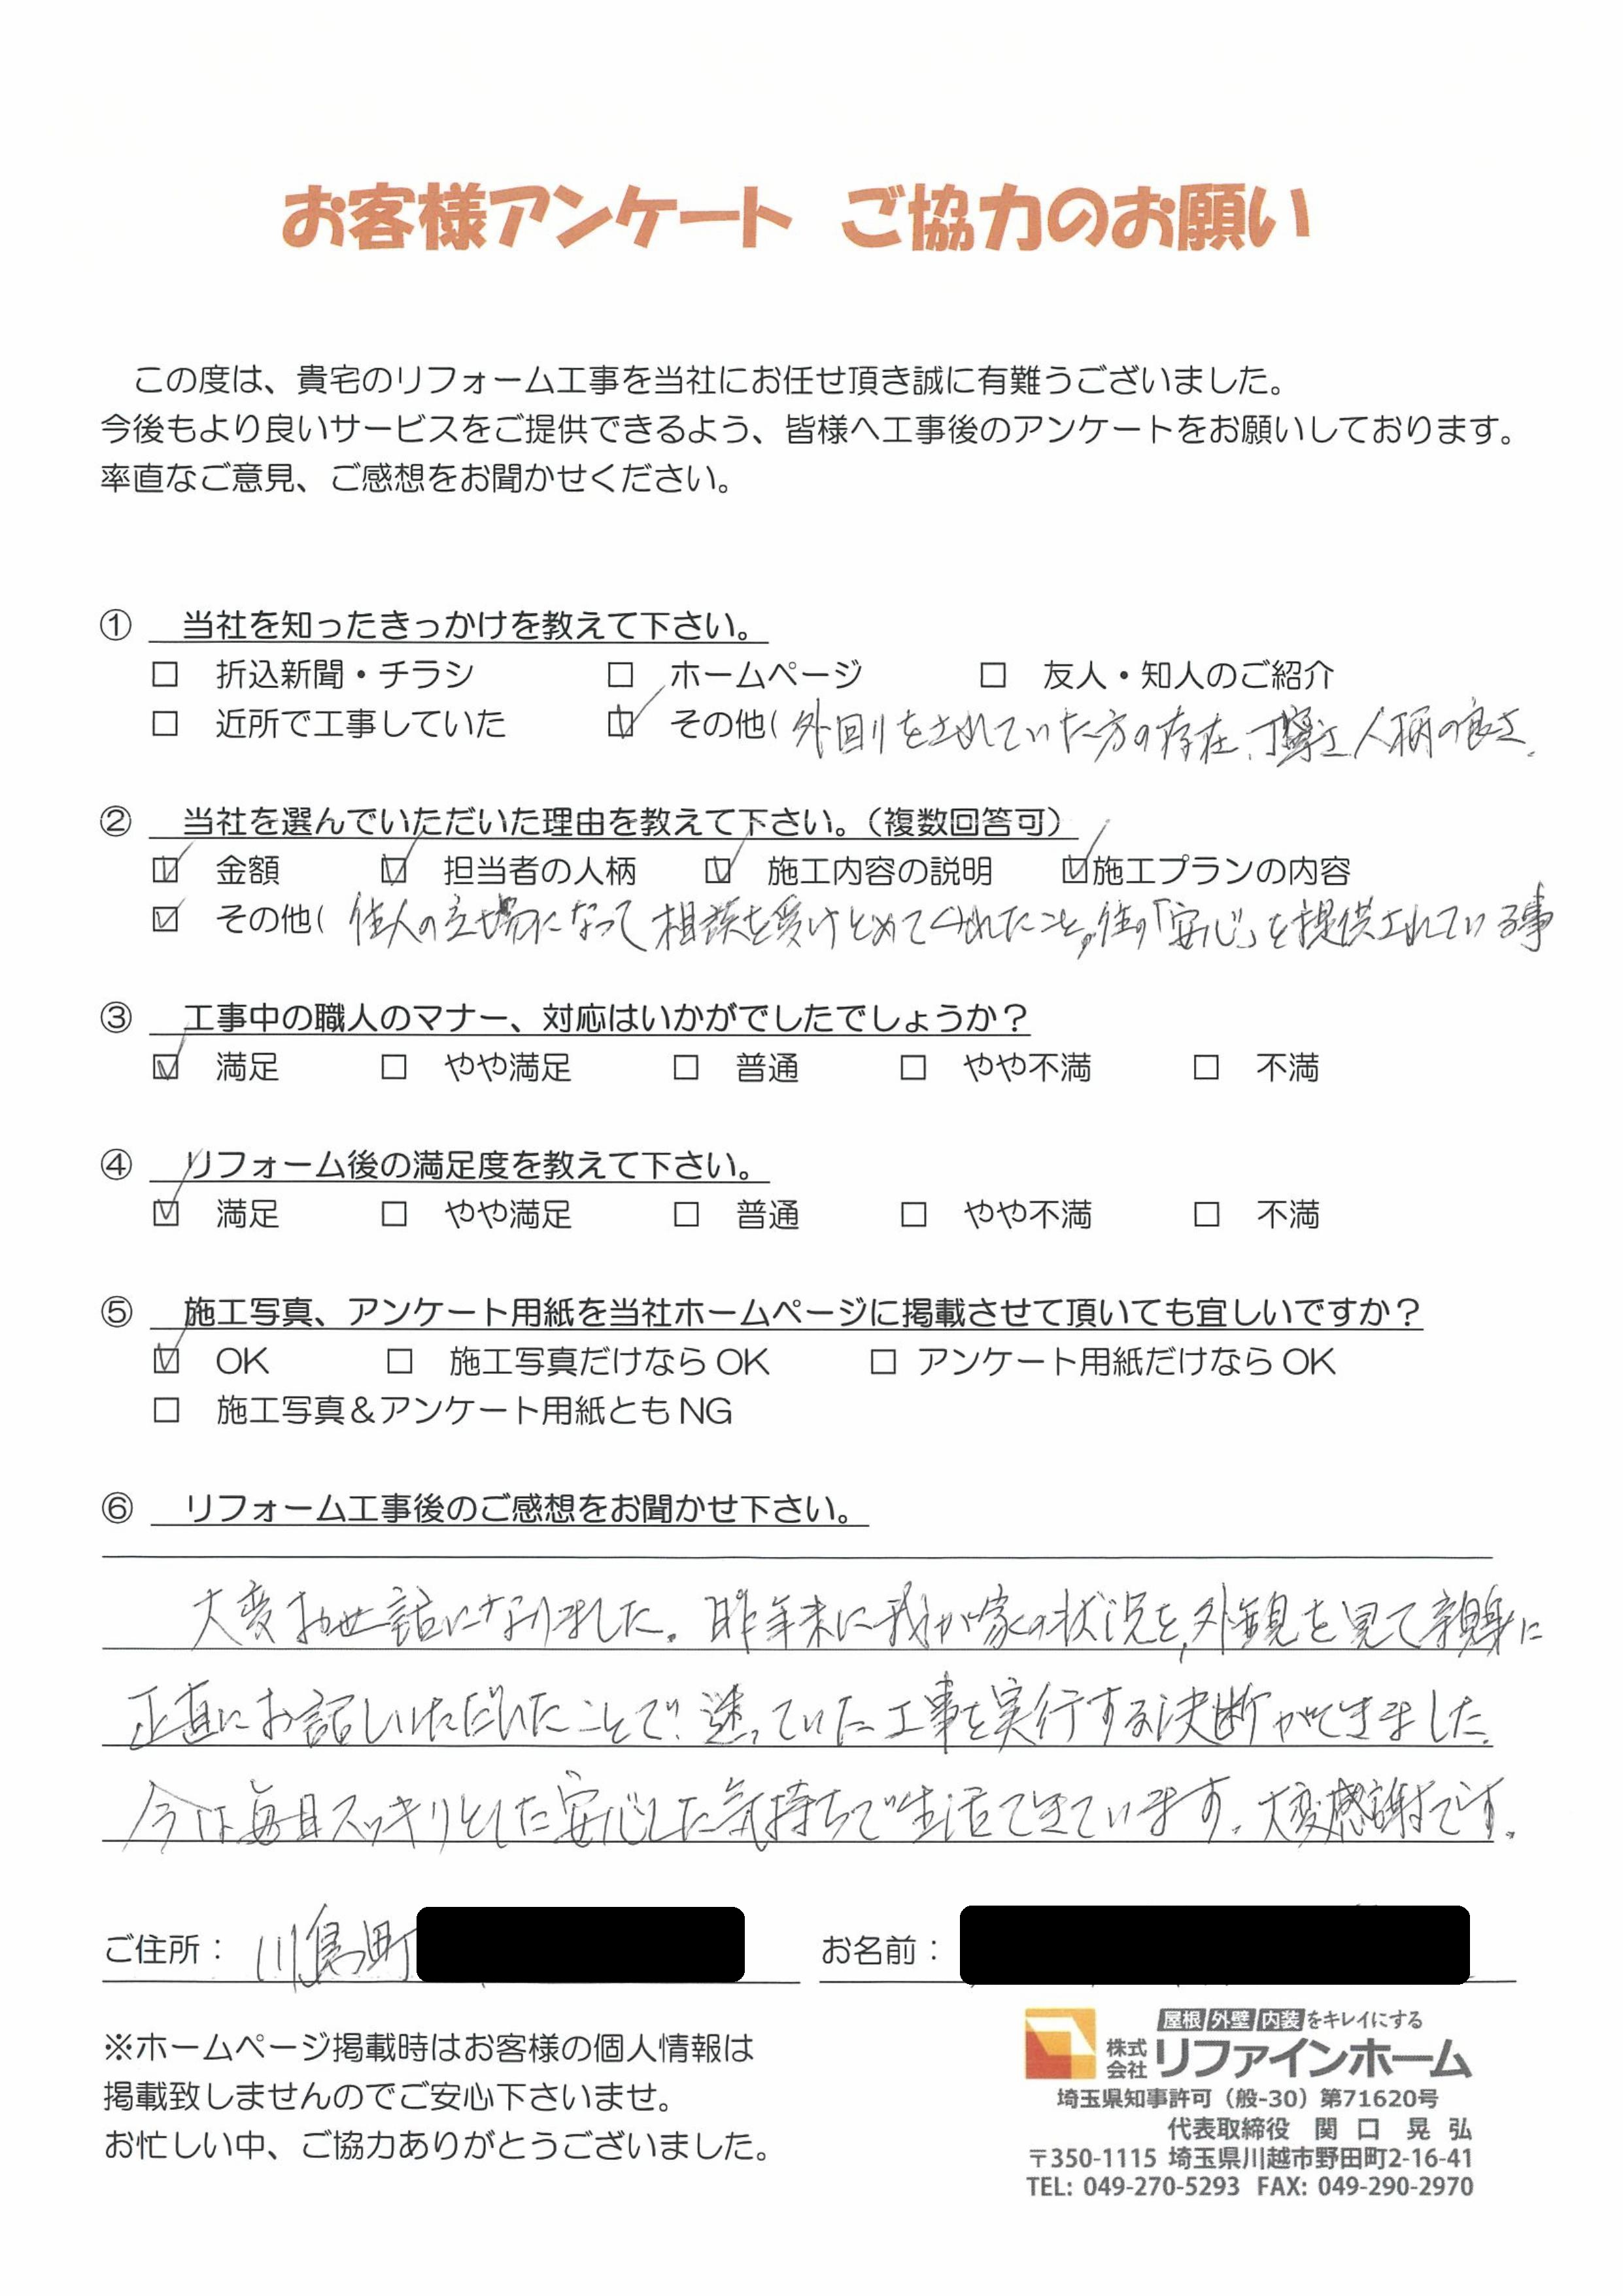 お客様アンケート ご協力のお願い
この度は、貴宅のリフォーム工事を当社にお任せ頂き誠に有難うございました。
今後もより良いサービスをご提供できるよう、皆様へ工事後のアンケートをお願いしております。
率直なご意見、ご感想をお聞かせください。
① 当社を知ったきっかけを教えて下さい。
□ 折込新聞・チラシ □ ホームページ □ 友人・知人のご紹介
□ 近所で工事していた ☑ その他( 外回りをされていた方の存在、丁寧さ、人柄の良さ、
② 当社を選んでいただいた理由を教えて下さい。（複数回答可）
☑ 金額 ☑ 担当者の人柄 ☑ 施工内容の説明 ☑施工プランの内容
☑ その他( 住人の立場になって相談を受けとめてくれたこと。住の「安心」を提供されている事
③ 工事中の職人のマナー、対応はいかがでしたでしょうか？
☑ 満足 □ やや満足 □ 普通 □ やや不満 □ 不満
④ リフォーム後の満足度を教えて下さい。
☑ 満足 □ やや満足 □ 普通 □ やや不満 □ 不満
⑤ 施工写真、アンケート用紙を当社ホームページに掲載させて頂いても宜しいですか？
☑ OK □ 施工写真だけなら OK □ アンケート用紙だけなら OK
□ 施工写真＆アンケート用紙とも NG
⑥ リフォーム工事後のご感想をお聞かせ下さい。
大変お世話になりました。昨年末に我が家の状況を、外観を見て親身に
正直にお話しいただいたことで、迷っていた工事を実行する決断ができました。
今は毎日スッキリとした安心した気持ちで生活できています。大変感謝です。
ご住所： 川島町 お名前：
※ホームページ掲載時はお客様の個人情報は
掲載致しませんのでご安心下さいませ。
お忙しい中、ご協力ありがとうございました。
屋根 外壁 内装 をキレイにする
株式会社 リファインホーム
埼玉県知事許可（般-30）第71620号
代表取締役 関 口 晃 弘
〒350-1115 埼玉県川越市野田町2-16-41
TEL: 049-270-5293 FAX: 049-290-2970